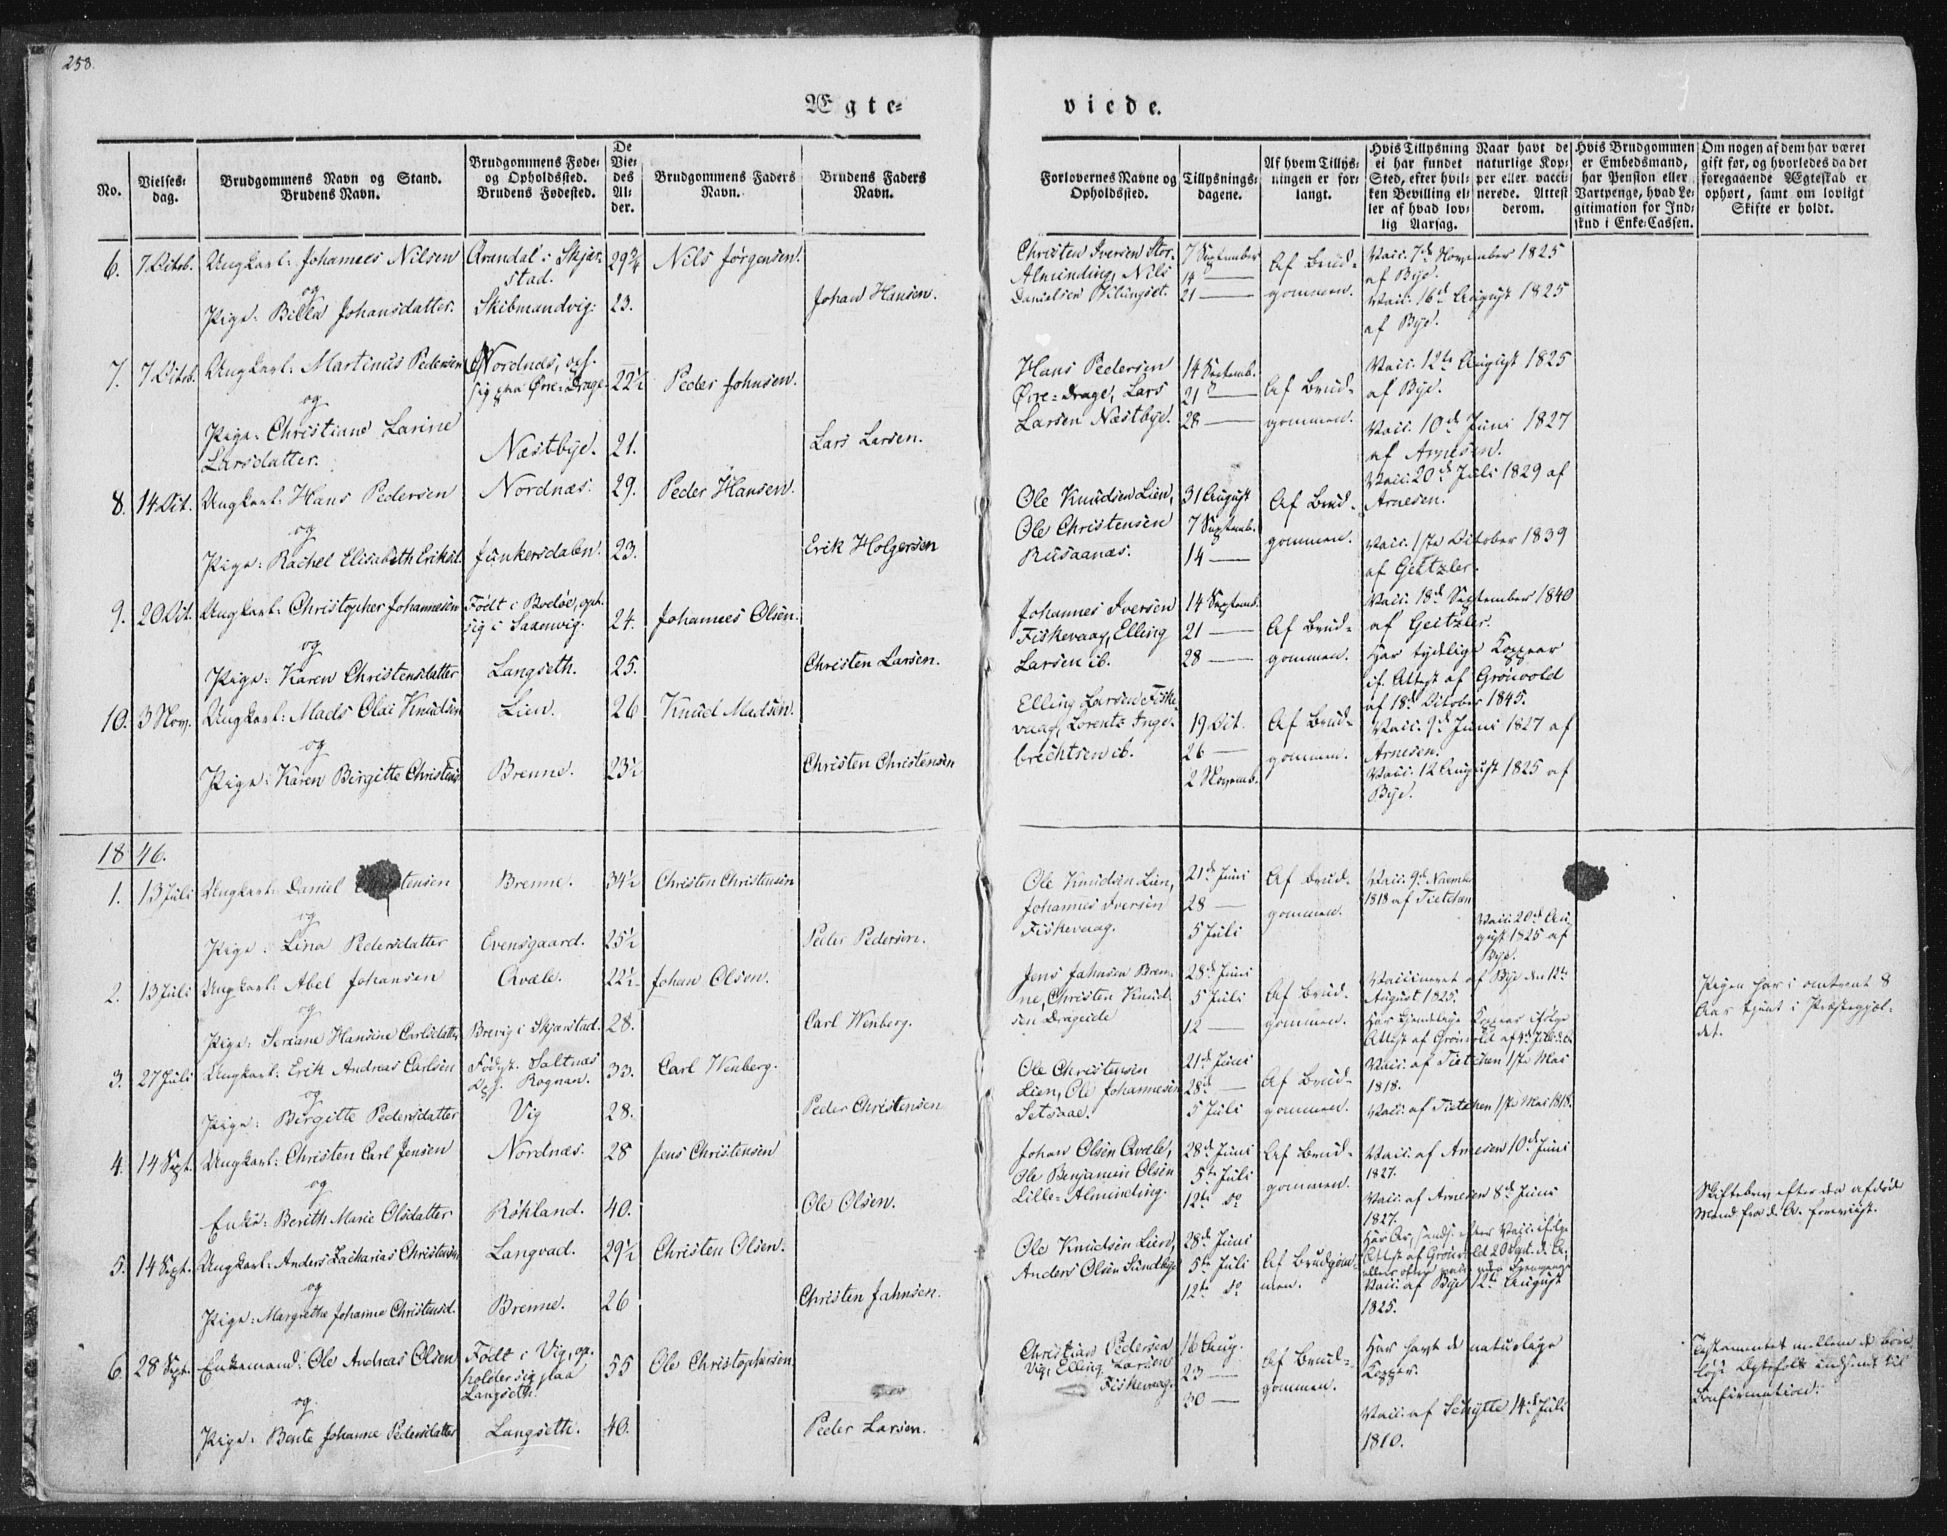 258.
Ægte-
viede.
No.
Vielses-
dag.
Brudgommens Navn og Stand.
Brudens Navn.
Brudgommens Føde-
og Opholdssted.
Brudens Fødested.
De
Vie-
des
Al-
der.
Brudgommens Faders
Navn.
Brudens Faders
Navn.
Forlovernes Navne og
Opholdssted.
Tillysnings-
dagene.
Af hvem Tillys-
ningen er for-
langt.
Hvis Tillysning
ei har fundet
Sted, efter hvil-
ken Bevilling el-
ler af hvad lov-
lig Aarsag.
Naar havt de
naturlige Kop-
per eller vacci-
nerede. Attest
derom.
Hvis Brudgommen
er Embedsmand,
har Pension eller
Vartpenge, hvad Le-
gitimation for Ind-
skud i Enke-Cassen.
Om nogen af dem har været
gift før, og hvorledes da det
foregaaende Ægteskab er
ophørt, samt om lovligt
Skifte er holdt.
6. 7 Octob. Ungkarl: Johannes Nilsen
og
Pige: Billa Johansdatter.
Arendal i Skjer-
stad.
Skibmandvig.
29¾
23.
Nils Jørgensen.
Johan Hansen.
Christen Iversen Stor
Alminding, Nils
Danielsen
7 September
14 —
21 —
Af Brud-
gommen.
Vacc. 7d November 1825
af Bye.
Vacc. 16d August 1825
af Bye.
7. 7 Octob. Ungkarl: Martinus Pedersen
og
Pige: Christiane Larine
Larsdatter.
Nordnæs, oph.
sig paa Øvre-Drage.
Næstbye.
22½
21.
Peder Johnsen.
Lars Larsen.
Hans Pedersen
Øvre-Drage, Lars
Larsen Næstbye.
14 Septemb.
21 —
28 —
Af Brud-
gommen.
Vacc. 12te August 1825
af Bye.
Vacc. 10d Juni 1827
af Arnesen.
8. 14 Oct. Ungkarl: Hans Pedersen
og
Pige: Rachel Elisabeth Eriksd.
Nordnæs.
Junkersdalen.
29.
23.
Peder Hansen.
Erik Holgersen
Ole Knudsen Lien,
Ole Christensen
Rusaanæs.
31 August
7 Septemb.
14 —
Af Brud-
gommen.
Vacc. 20d Juli 1829 af
Arnesen.
Vacc. 1ste October 1839
af Geitzler.
9. 20 Oct. Ungkarl: Christopher Johannesen
og
Pige: Karen Christensdatter
Født i Bodøe, oph.
sig i Saxenvig.
Langseth.
24.
25.
Johannes Olsen.
Christen Larsen.
Johannes Iversen
Fiskevaag, Elling
Larsen ib.
14 Septemb.
21 —
28 —
Af Brud-
gommen.
Vacc. 18d September 1840
af Geitzler.
Har tydelige Kopper
if. Attest af Grönvold
af 18d October 1845.
10. 3 Nov. Ungkarl: Mads Olai Knudsen
og
Pige: Karen Birgitte Christensd.
Lien.
Brenne.
26
23½
Knud Madsen.
Christen Christensen
Elling Larsen Fiske-
vaag, Lorentz Inge-
brechtsen ib.
19 Oct.
26 —
2 Novemb.
Af Brud-
gommen.
Vacc. 9d Juni 1827 af
Arnesen.
Vacc. 12 August 1825 af
Bye.
1846.
1. 13 Juli Ungkarl: Daniel
og
Pige: Lina Pedersdatter
Brenne.
Evensgaard.
34½
25½
Christen Christensen
Peder Pedersen.
Ole Knudsen Lien,
Johannes Iversen
Fiskevaag.
21d Juni
28 —
5 Juli
Af Brud-
gommen.
Vacc. 9d Novemb.
1818 af Tietchen
Vacc. 20d Au-
gust 1825 af
Bye.
2. 13 Juli Ungkarl: Abel Johansen
og
Pige: Seriane Hansine Carlsdatter
Qvæle.
Brevig i Skjerstad.
22½
28.
Johan Olsen.
Carl Wenberg.
Jens Jahnsen Bren-
ne, Christen Knud-
sen Drageide
28d Juni
5 Juli
12 —
Af Brud-
gommen.
Vaccineret af Bye den 12te
August 1825.
Har kjendelige Kopper ifølge
Attest af Grönvold af 4d Juli d. A.
Pigen har i omtrent 8
Aar tjent i Præstegjel-
det.
3. 27 Juli Ungkarl: Erik Andreas Carlsen
og
Pige: Birgitte Pedersdatter
Født. Saltnæs
Oph. Rognan.
Vig
33.
28.
Carl Wenberg.
Peder Christensen
Ole Christensen
Lien, Ole Johannesen
Setsaae.
21d Juni
28d —
5 Juli
Af Brud-
gommen.
Vacc. af Tietchen 1ste Mai
1818.
Vacc. af Tietchen 1ste Mai 1818.
4. 14 Sept. Ungkarl: Christen Carl Jensen
og
Enke: Berith Marie Olsdatter
Nordnæs.
Røkland.
28
40.
Jens Christensen
Ole Olsen.
Johan Olsen Qvæle,
Ole Benjamin Olsen
Lille-Alminding.
28d Juni
5te Juli
12te do
Af Brud-
gommen.
Vacc. af Arnesen 10d Juni
1827.
Vacc. af Arnesen 8d Juni
1827.
Skiftebrev efter den afdøde
Mand fra d. A. foreviist.
5. 14 Sept. Ungkarl: Anders Zacharias Christensen
og
Pige: Margrethe Johanna Christensd.
Langvad.
Brenne.
29½
26
Christen Olsen.
Christen Jahnsen.
Ole Knudsen Lien,
Anders Olsen Sundbye
28d Juni
5te Juli
12te do
Af Brudgom-
men.
Har Ar, sands. efter Vacc. ifølge
Attest af Grönvold 20 Sept. d. A.
Vacc. af Bye 12te August
1825.
6. 28 Sept. Enkemand: Ole Andreas Olsen
og
Pige: Bente Johanne Pedersdatter
Født i Vig, op-
holder sig paa
Langseth.
Langseth.
55
40.
Ole Christophersen
Peder Larsen.
Christian Pedersen
Vig, Elling Larsen
Fiskevaag.
16 Aug.
23 —
30 —
Af Brud-
gommen.
Har havt de naturlige
Kopper.
Vacc. af Schytte 14d Juli
1810.
Testamentet mellem de barn-
løse Ægtefolk indsendt til
Confirmation.